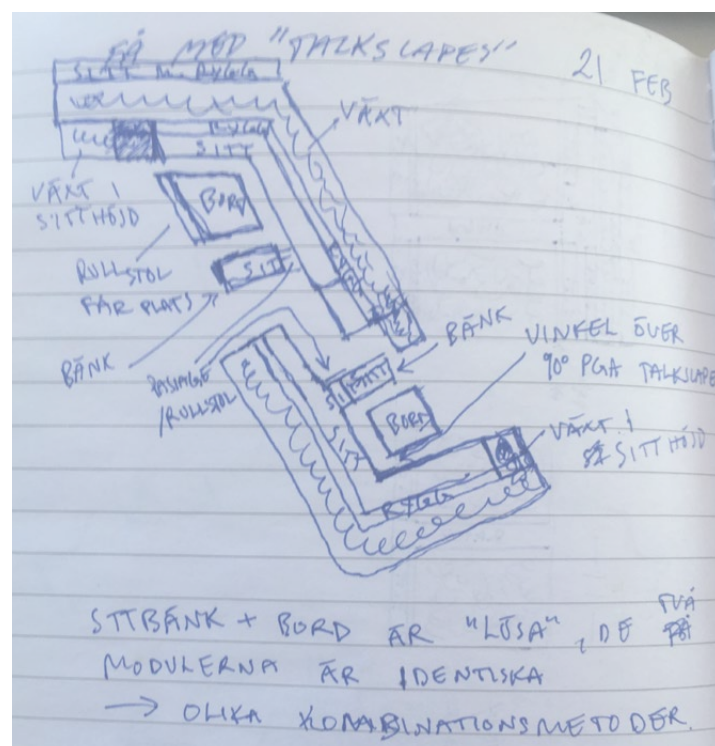 FÅ MED "TALKSCAPES"
21 FEB
SITT M. RYGG
VÄXT
RYGG
SITT
VÄXT I
SITTHÖJD
BORD
RULLSTOL
FÅR PLATS
SITT
BÄNK
PASSAGE
/RULLSTOL
BÄNK
VINKEL ÖVER
90° PGA TALKSCAPE
SITT
BORD
SITT
VÄXT I
SITTHÖJD
RYGG
SITTBÄNK + BORD ÄR "LÖSA", DE TVÅ
MODULERNA ÄR IDENTISKA
→ OLIKA KOMBINATIONSMETODER.